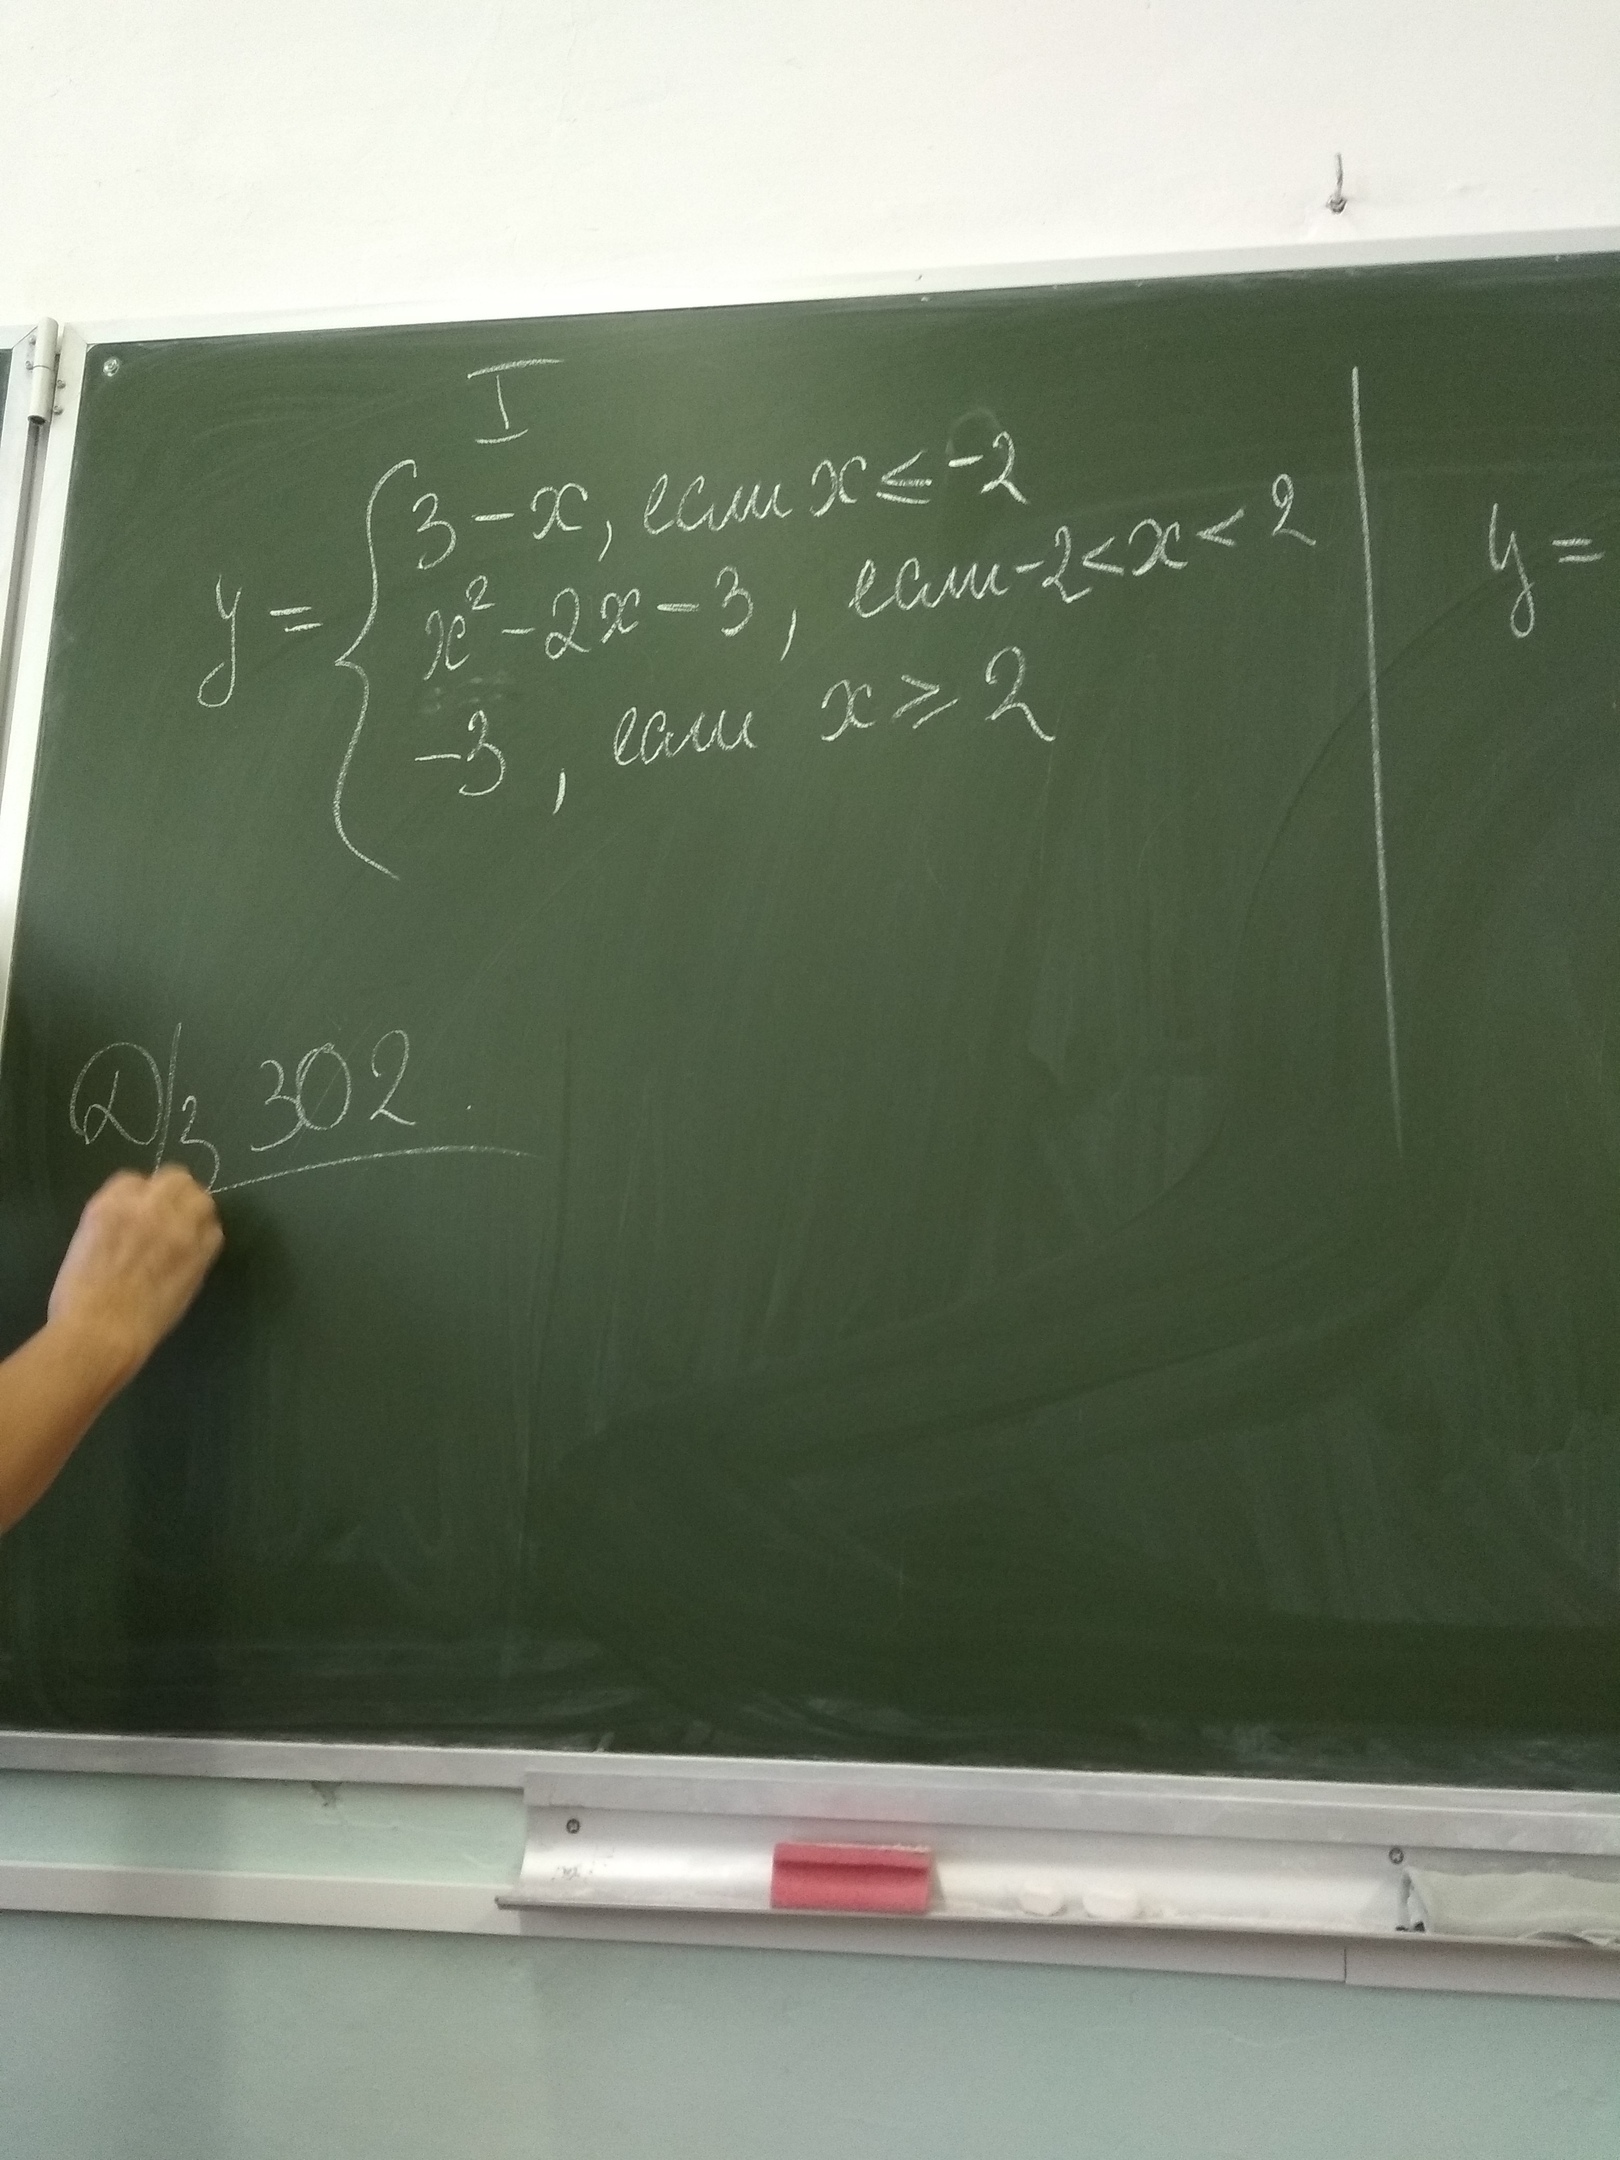 I
y = { 3 - x, если x ≤ -2
x² - 2x - 3, если -2 < x < 2
-3, если x ≥ 2
y =
Д/з 302.